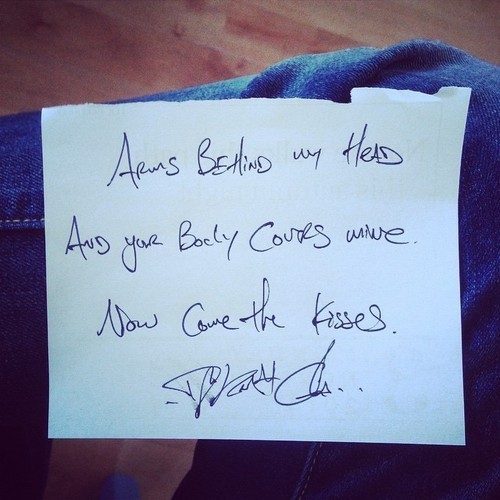 Arms Behind my Head
And your Body Covers mine.
Now Come the Kisses.